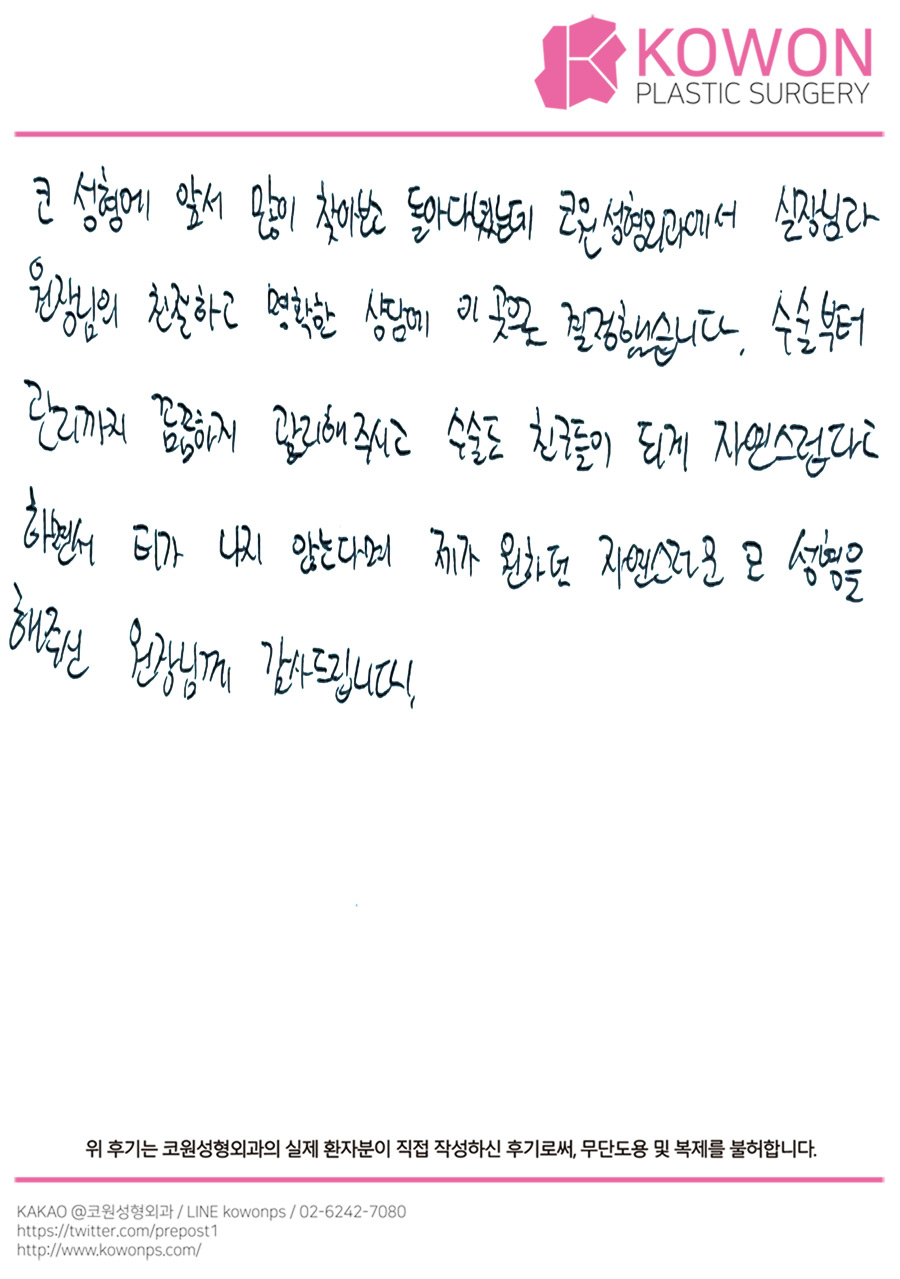 KOWON
PLASTIC SURGERY
코 성형에 앞서 많이 찾아보고 돌아다녔는데 코원성형외과에서 실장님과
원장님의 친절하고 명확한 상담에 이 곳으로 결정했습니다. 수술부터
관리까지 꼼꼼하게 관리해주시고 수술도 친구들이 되게 자연스럽다고
하면서 티가 나지 않는다며 제가 원하던 자연스러운 코 성형을
해주신 원장님께 감사드립니다!
위 후기는 코원성형외과의 실제 환자분이 직접 작성하신 후기로써, 무단도용 및 복제를 불허합니다.
KAKAO @코원성형외과 / LINE kowonps / 02-6242-7080
https://twitter.com/prepost1
http://www.kowonps.com/